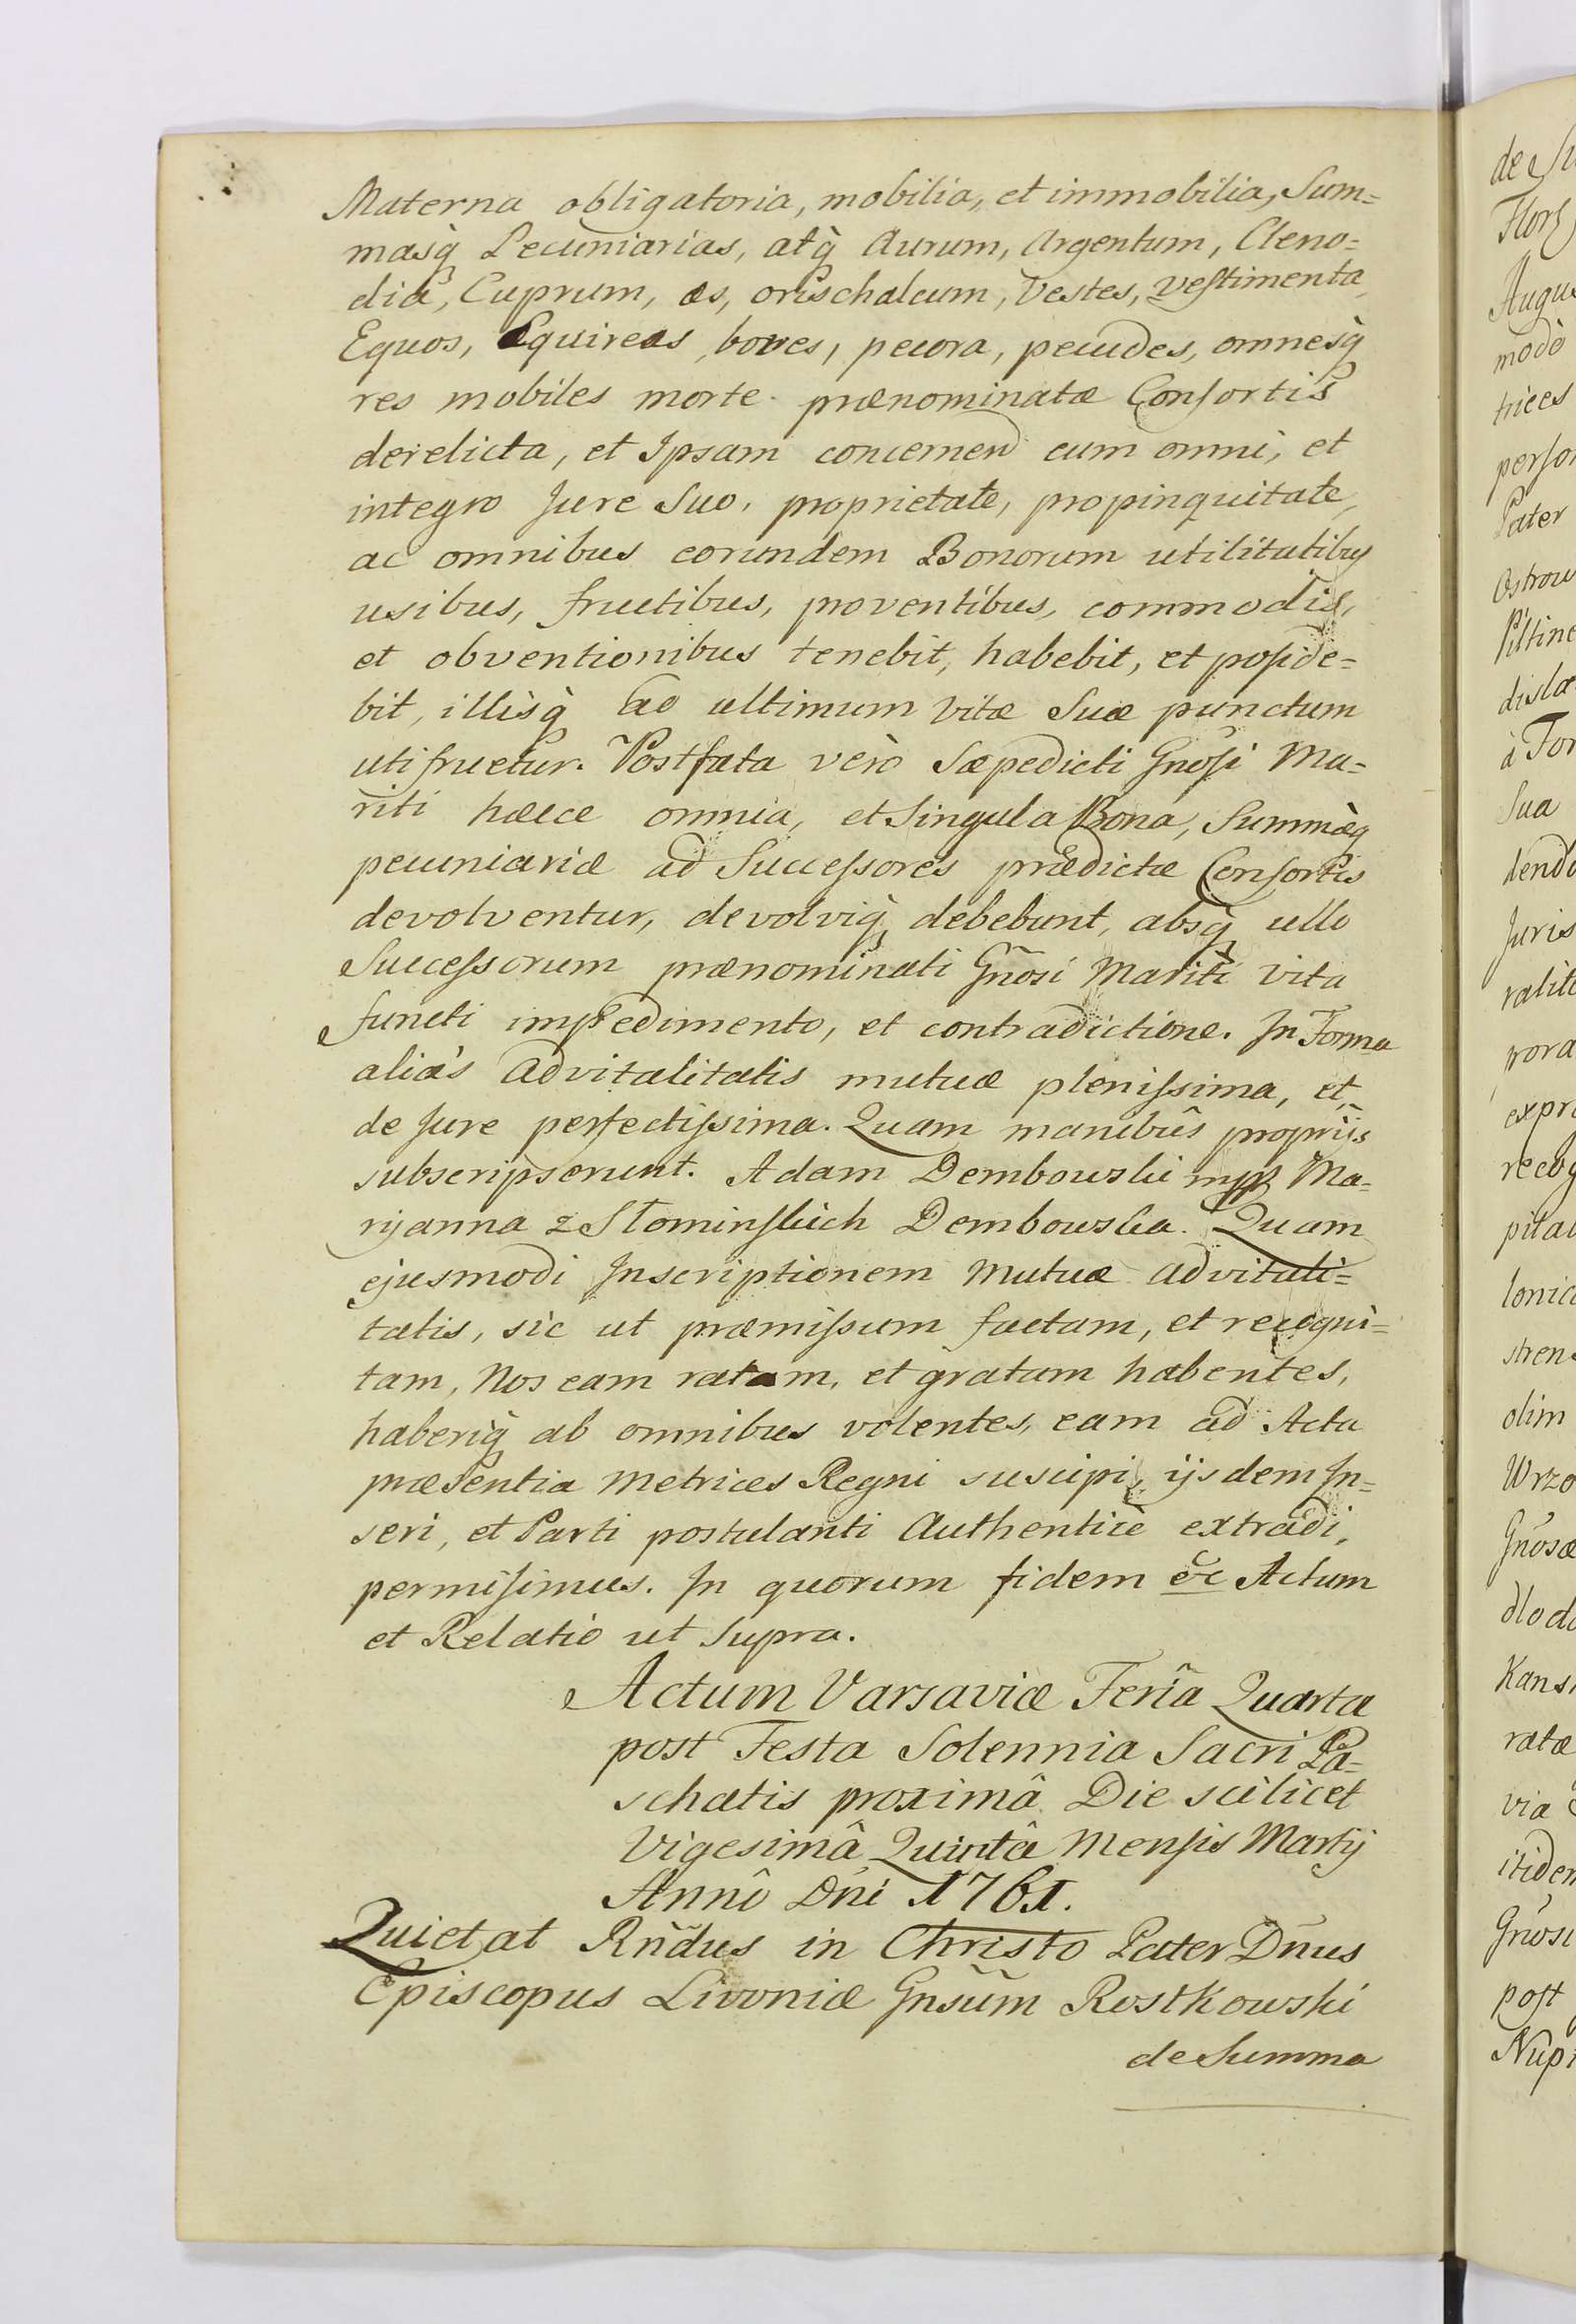 Materna obligatoria, mobilia, et immobilia, Sum=
masq̀ Pecuniarias, atq̀ Aurum, Argentum, Cleno=
dia, Cuprum, æs, orischalcum, Vestes, vestimenta,
Equos, Equireas, boves, pecora, pecudes, omnesq̀
res mobiles morte prænominatæ Consortis
derelicta, et Ipsam concernen cum omni, et
integro Jure Suo, proprietate, propinquitate,
ac omnibus eorundem Bonorum utilitatibus
usibus, fructibus, proventibus, commodis,
et obventionibus tenebit, habebit, et poside=
bit, illisq̀ ad ultimum Vitæ Suæ punctum
uti fruetur. Post fata verò Sæpedicti Gnosi Ma=
riti hæcce omnia, et Singula Bona, Summæq
pecuniariæ ad Successores prædictæ Consortis
devolventur, devolviq̀ debebunt, absq̀ ullo
Successorum prænominati Gñosi Mariti Vita
functi impedimento, et contradictione. In Forma
aliàs advitalitatis mutuæ plenissima, et
de Jure perfectissima. Quam manibûs proprijs
subscripserunt. Adam Dembowski mpp Ma=
ryanna z Słominskich Dembowska. Quam
ejusmodi Inscriptionem Mutuæ advitali=
tatis, sic ut præmissum factam, et recogni=
tam, Nos eam ratam, et gratam habentes,
haberiq̀ ab omnibus volentes, eam ad Acta
præsentia Metrices Regni suscipi, ijsdem In=
seri, et Parti postulanti Authenticè extradi,
permisimus. In quorum fidem &c Actum
et Relatio ut Supra.
Actum Varsaviæ Feriâ Quarta
post Festa Solennia Sacri Pa=
schatis proximâ Die scilicet
Vigesimâ Quintâ Mensis Martij
Annô Dni 1761.
Quietat Rñdus in Christo Pater Dñus
Episcopus Livoniæ Gñsum Rostkowski
de Summa
Flor
Augus
modò
trices
person
Pater
Ostrow
Piltine
dislæ
à
Sua
dendo
Juris
ralit
expr
recog
pitæ
lonic
stren
olim
Wrzo
Gñosæ
Kans
ratæ
via
itidem
Gñosi
post
Nupt